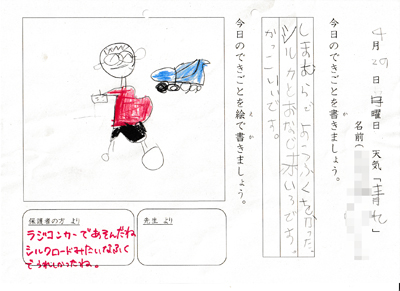 4月29日 日曜日 天気「晴れ」
名前(
今日のできごとを書きましょう。
しまむらでようふくをかった。
シルクとおなじ赤いろです。
かっこいいです。
今日のできごとを絵で書きましょう。
先生 より
保護者の方 より
ラジコンカーであそんだね
シルクロードみたいなふく
でうれしかったね。